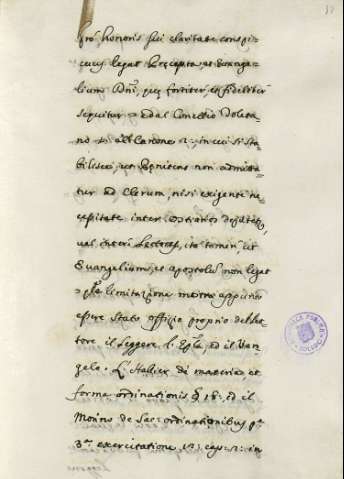 pro honoris sui claritate conspi=
cuus legat Præcepta, et Evange=
lium Dni, quæ fortiter, et fideliter
sequitur = ed al Concilio Toleta
no al Canone 2: in cui si sta
bilisce, ut Penitens non admitta
tur ad Clerum, nisi exigente ne
cessitate inter Ostiarios deputetur,
vel inter Lectores, ita tamen, ut
Evangelium, et Apostolum non legat
= limitazione appunto
essere stato offizio proprio del let=
tore il leggere l'Epla, ed il Van
gelo. L'Hallier de materia, et
forma ordinationis § 18: ed il
Morino de Sac: ordinationibus p
3ª exercitatione, cap: 2: in